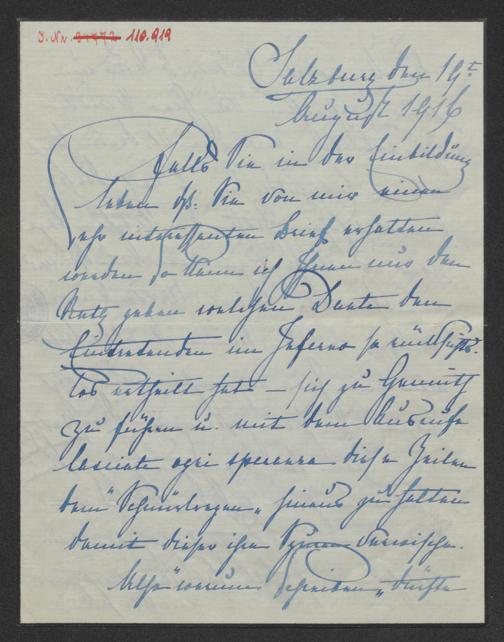 I. Nr. 31772 110.919
Salzburg den 19t
August 1916
Falls Sie in der Einbildung
leben dß. Sie von mir einen
sehr interessanten Brief erhalten
werden so kann ich Ihnen nur den
Rath geben welchen Dante den
Eintretenden im Inferno so rücksichts-
los ertheilt hat – sich zu Gemüth
zu führen u. mit dem Ausrufe
lasciate ogni speranza diese Zeilen
dem "Schnürlregen" hinaus zu halten
damit dieser ihre Spuren verwische.
Also "warum schreiben" dürfte